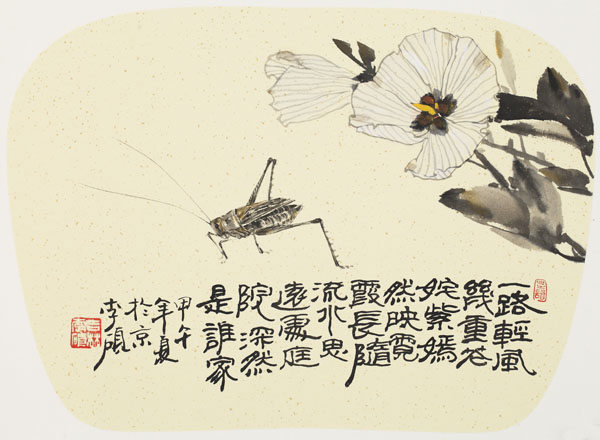 一路輕風
幾重花
姹紫嫣
然映霓
霞長隨
流水思
遠處庭
院深然
是誰家
甲午
年夏
於京
李